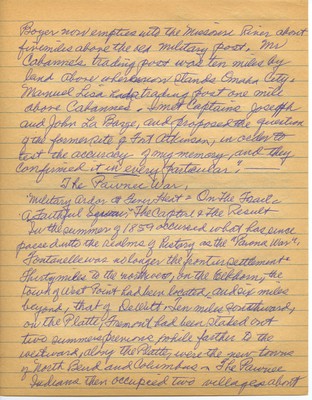 Boyer now empties into the Missouri River about
five miles above the old military post. Mr
Cabanne's trading post was ten miles by
land above where now stands Omaha City.
Manuel Lisa had trading post one mile
above Cabannes. I met Captains Joseph
and John La Barge, and proposed the question
of the former site of Fort Atkinson, in order to
test the accuracy of my memory, and they
confirmed it in every particular.
The Pawnee War,
"Military Ardor at Fever Heat = On The Trail =
A Faithful Squaw" The Capture & The Result
In the summer of 1859 occurred what has since
passed into the Realms of history as the "Pawnee War",
Fontanelle was no longer the frontier settlement =
Thirty miles to the northwest, on the Elkhorn, the
town of West Point had been located, and six miles
beyond, that of DeWitt = Ten miles southward,
on the Platte, Fremont had been staked out
two summers previous, while farther to the
westward, along the Platte, were the new towns
of North Bend and Columbus = The Pawnee
Indians then occupied two villages about